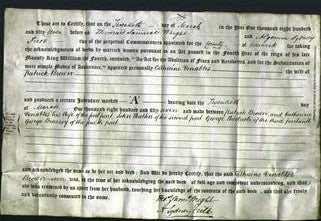 These are to Certify, that on the Twentieth day of March in the Year One thousand eight hundred
and fifty seven before Thomas Samuel Wright and
two of the perpetual Commissioners appointed for the County of Warwick for taking
the acknowledgments of deeds by married women pursuant to an Act passed in the Fourth year of the reign of his late
Majesty King William the Fourth, intituled, "An Act for the Abolition of Fines and Recoveries, and for the Substitution of
more simple Modes of Assurance," appeared personally Catherine
Patrick Brown
and produced a certain Indenture marked A bearing date the Twentieth
day of March One thousand eight hundred and fifty seven and made between Patrick Brown and Catherine
his wife of the first part John of the second part George of the third part and
George of the fourth part
and acknowledged the same to be her act and deed: And we do hereby certify, that the said Catherine
Brown was, at the time of her acknowledging the said deed, of full age and competent understanding, and that
she was examined by us apart from her husband, touching her knowledge of the contents of the said deed, and that she freely
and voluntarily consented to the same.
Thos Saml Wright